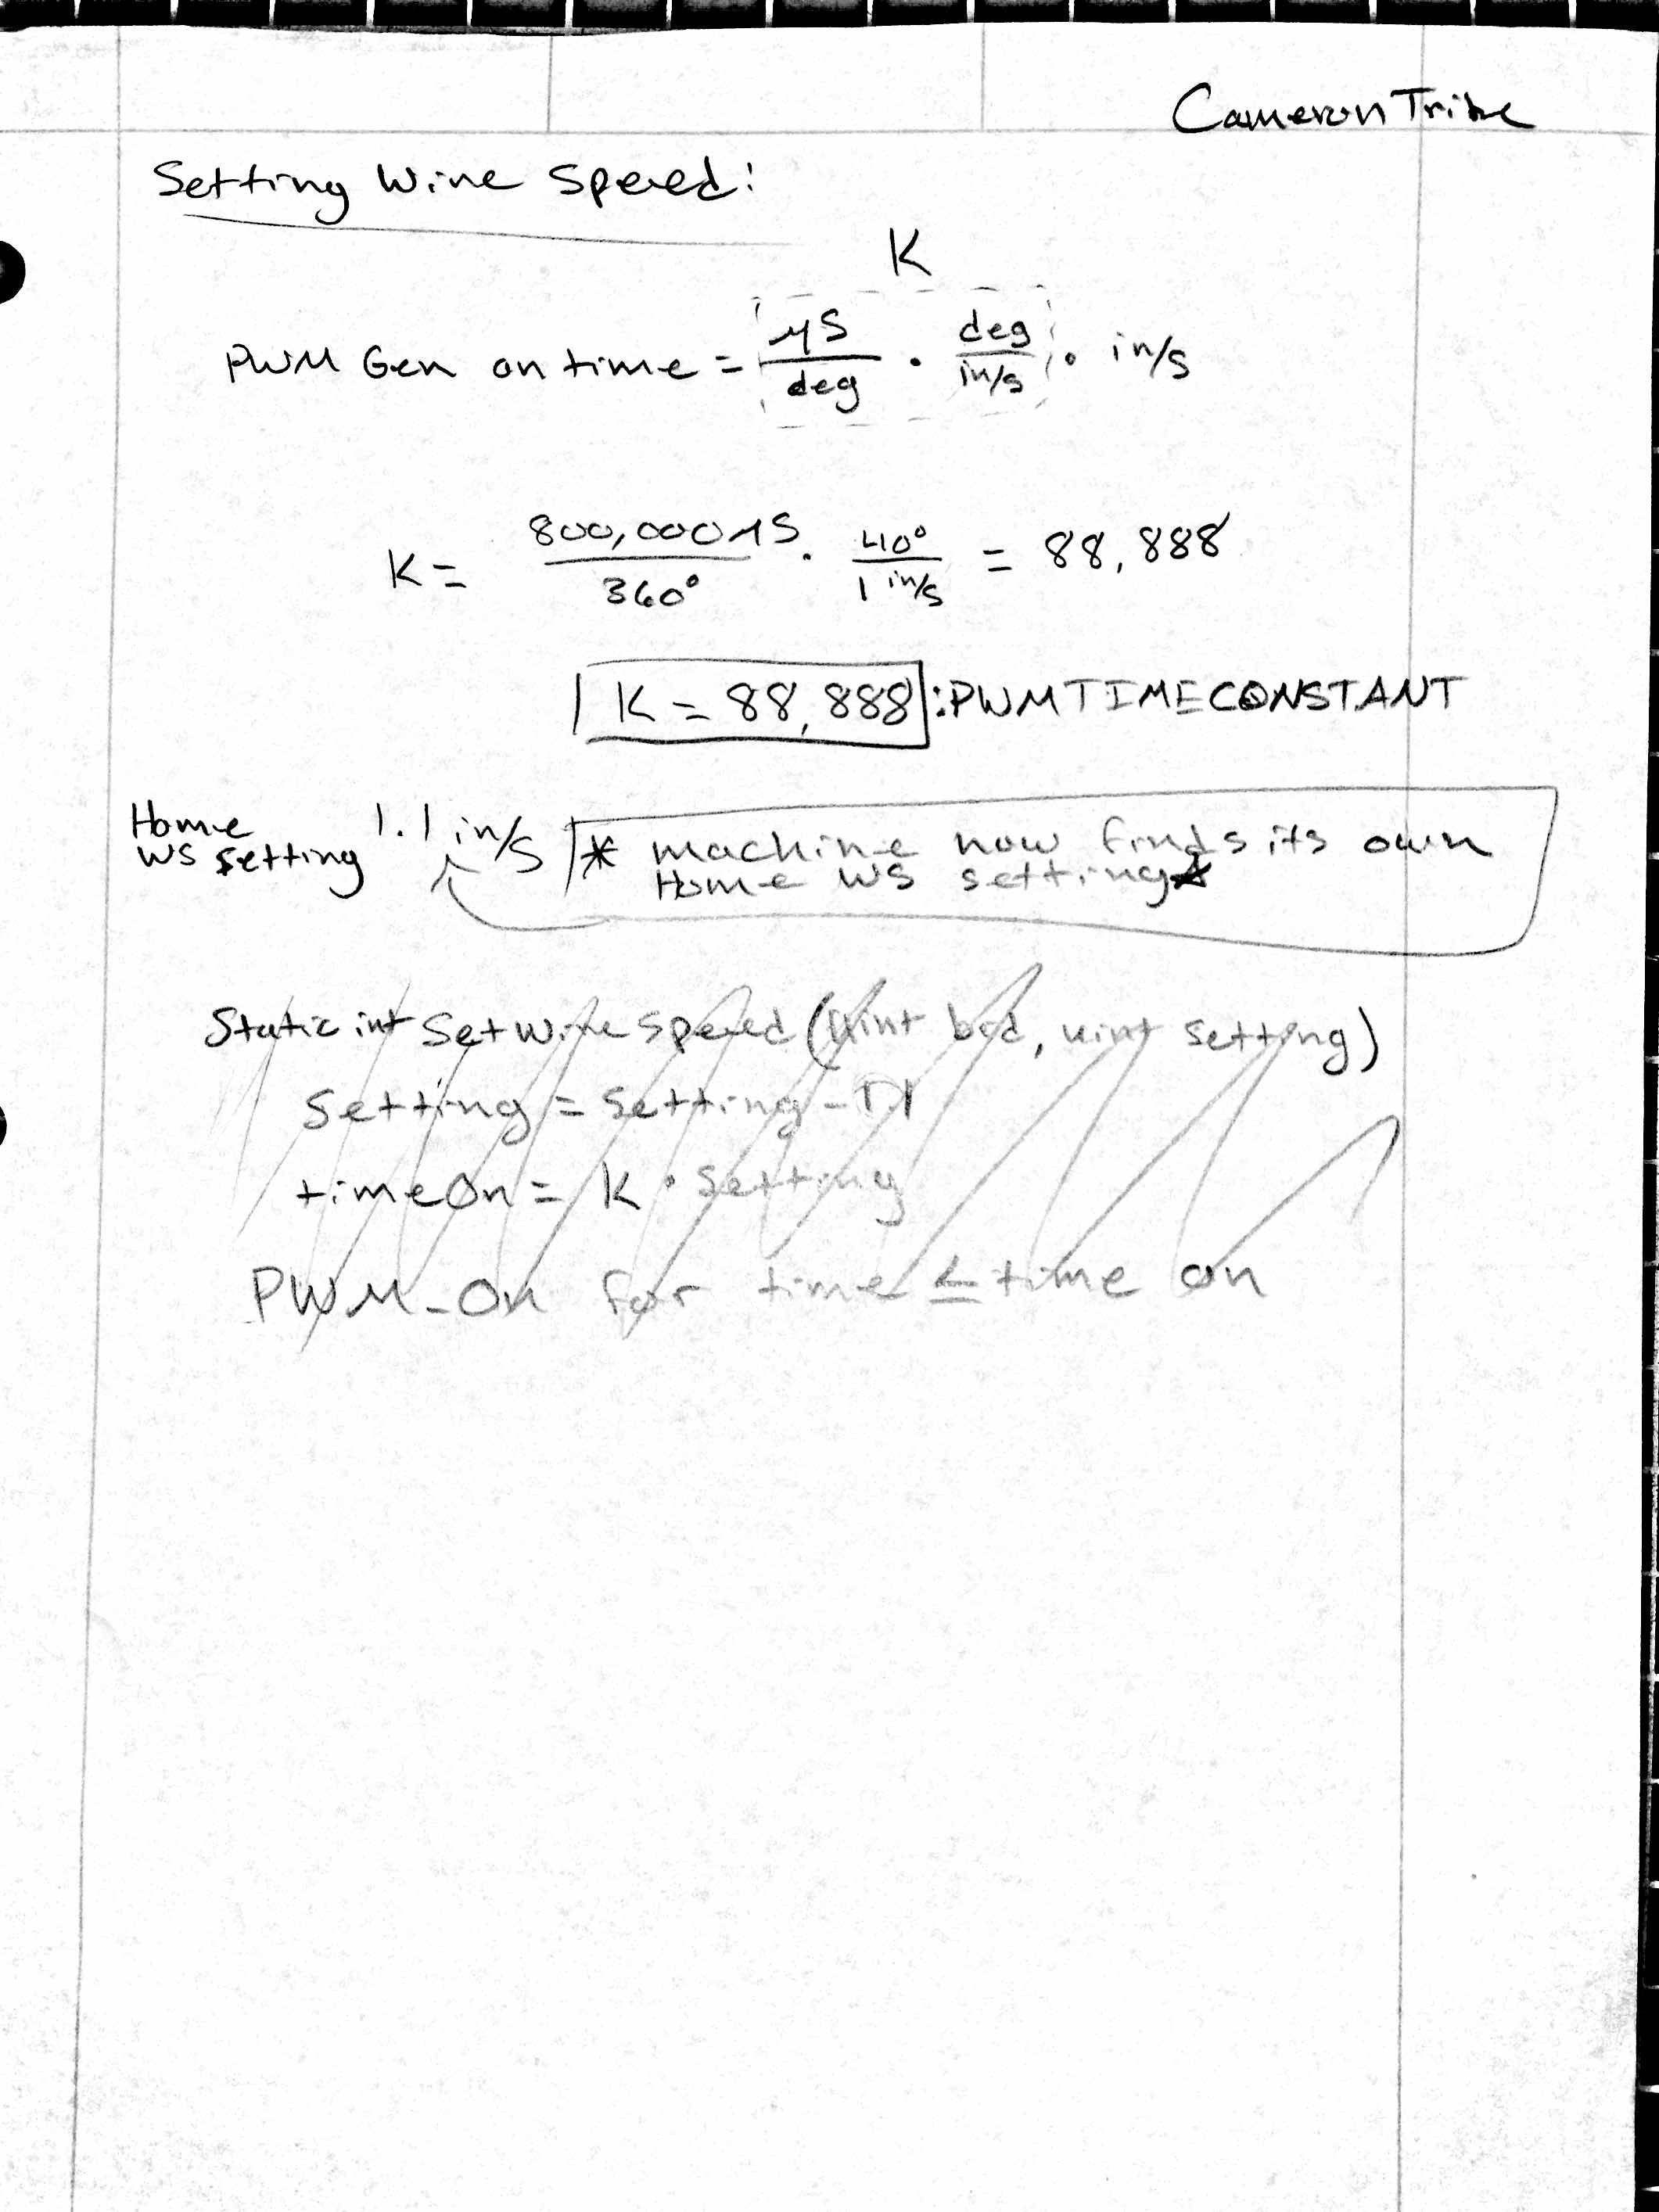 Cameron Tribe
Setting Wire Speed:
K
PWM Gen on time = µS/deg · deg/in/s · in/s
K = 800,000µS/360° · 40°/1 in/s = 88,888
K = 88,888 : PWMTIMECONSTANT
Home WS setting 1.1 in/s * machine now finds its own
Home WS setting*
Static int SetWireSpeed (uint brd, uint setting)
Setting = Setting -
timeOn = K · Setting
PWM-On for time ≤ time on